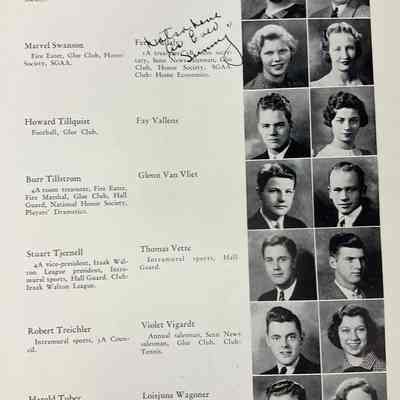 Marvel Swanson
Fire Eater, Glee Club, Honor
Society, SGAA.
Howard Tillquist
Football, Glee Club.
Burr Tillstrom
4A room treasurer, Fire Eater,
Fire Marshal, Glee Club, Hall
Guard, National Honor Society,
Players' Dramatics.
Stuart Tjernell
4A vice-president, Izaak Wal-
ton League president, Intra-
mural sports, Hall Guard. Club:
Izaak Walton League.
Robert Treichler
Intramural sports, 3A Coun-
cil.
Harold Tuber
tary, Senn News salesman, Glee
Club, Honor Society, SGAA.
Club: Home Economics.
Fay Vallens
Glenn Van Vliet
Thomas Vette
Intramural sports, Hall
Guard.
Violet Vigardt
Annual salesman, Senn News
salesman, Glee Club. Club:
Tennis.
Loisjune Wagoner